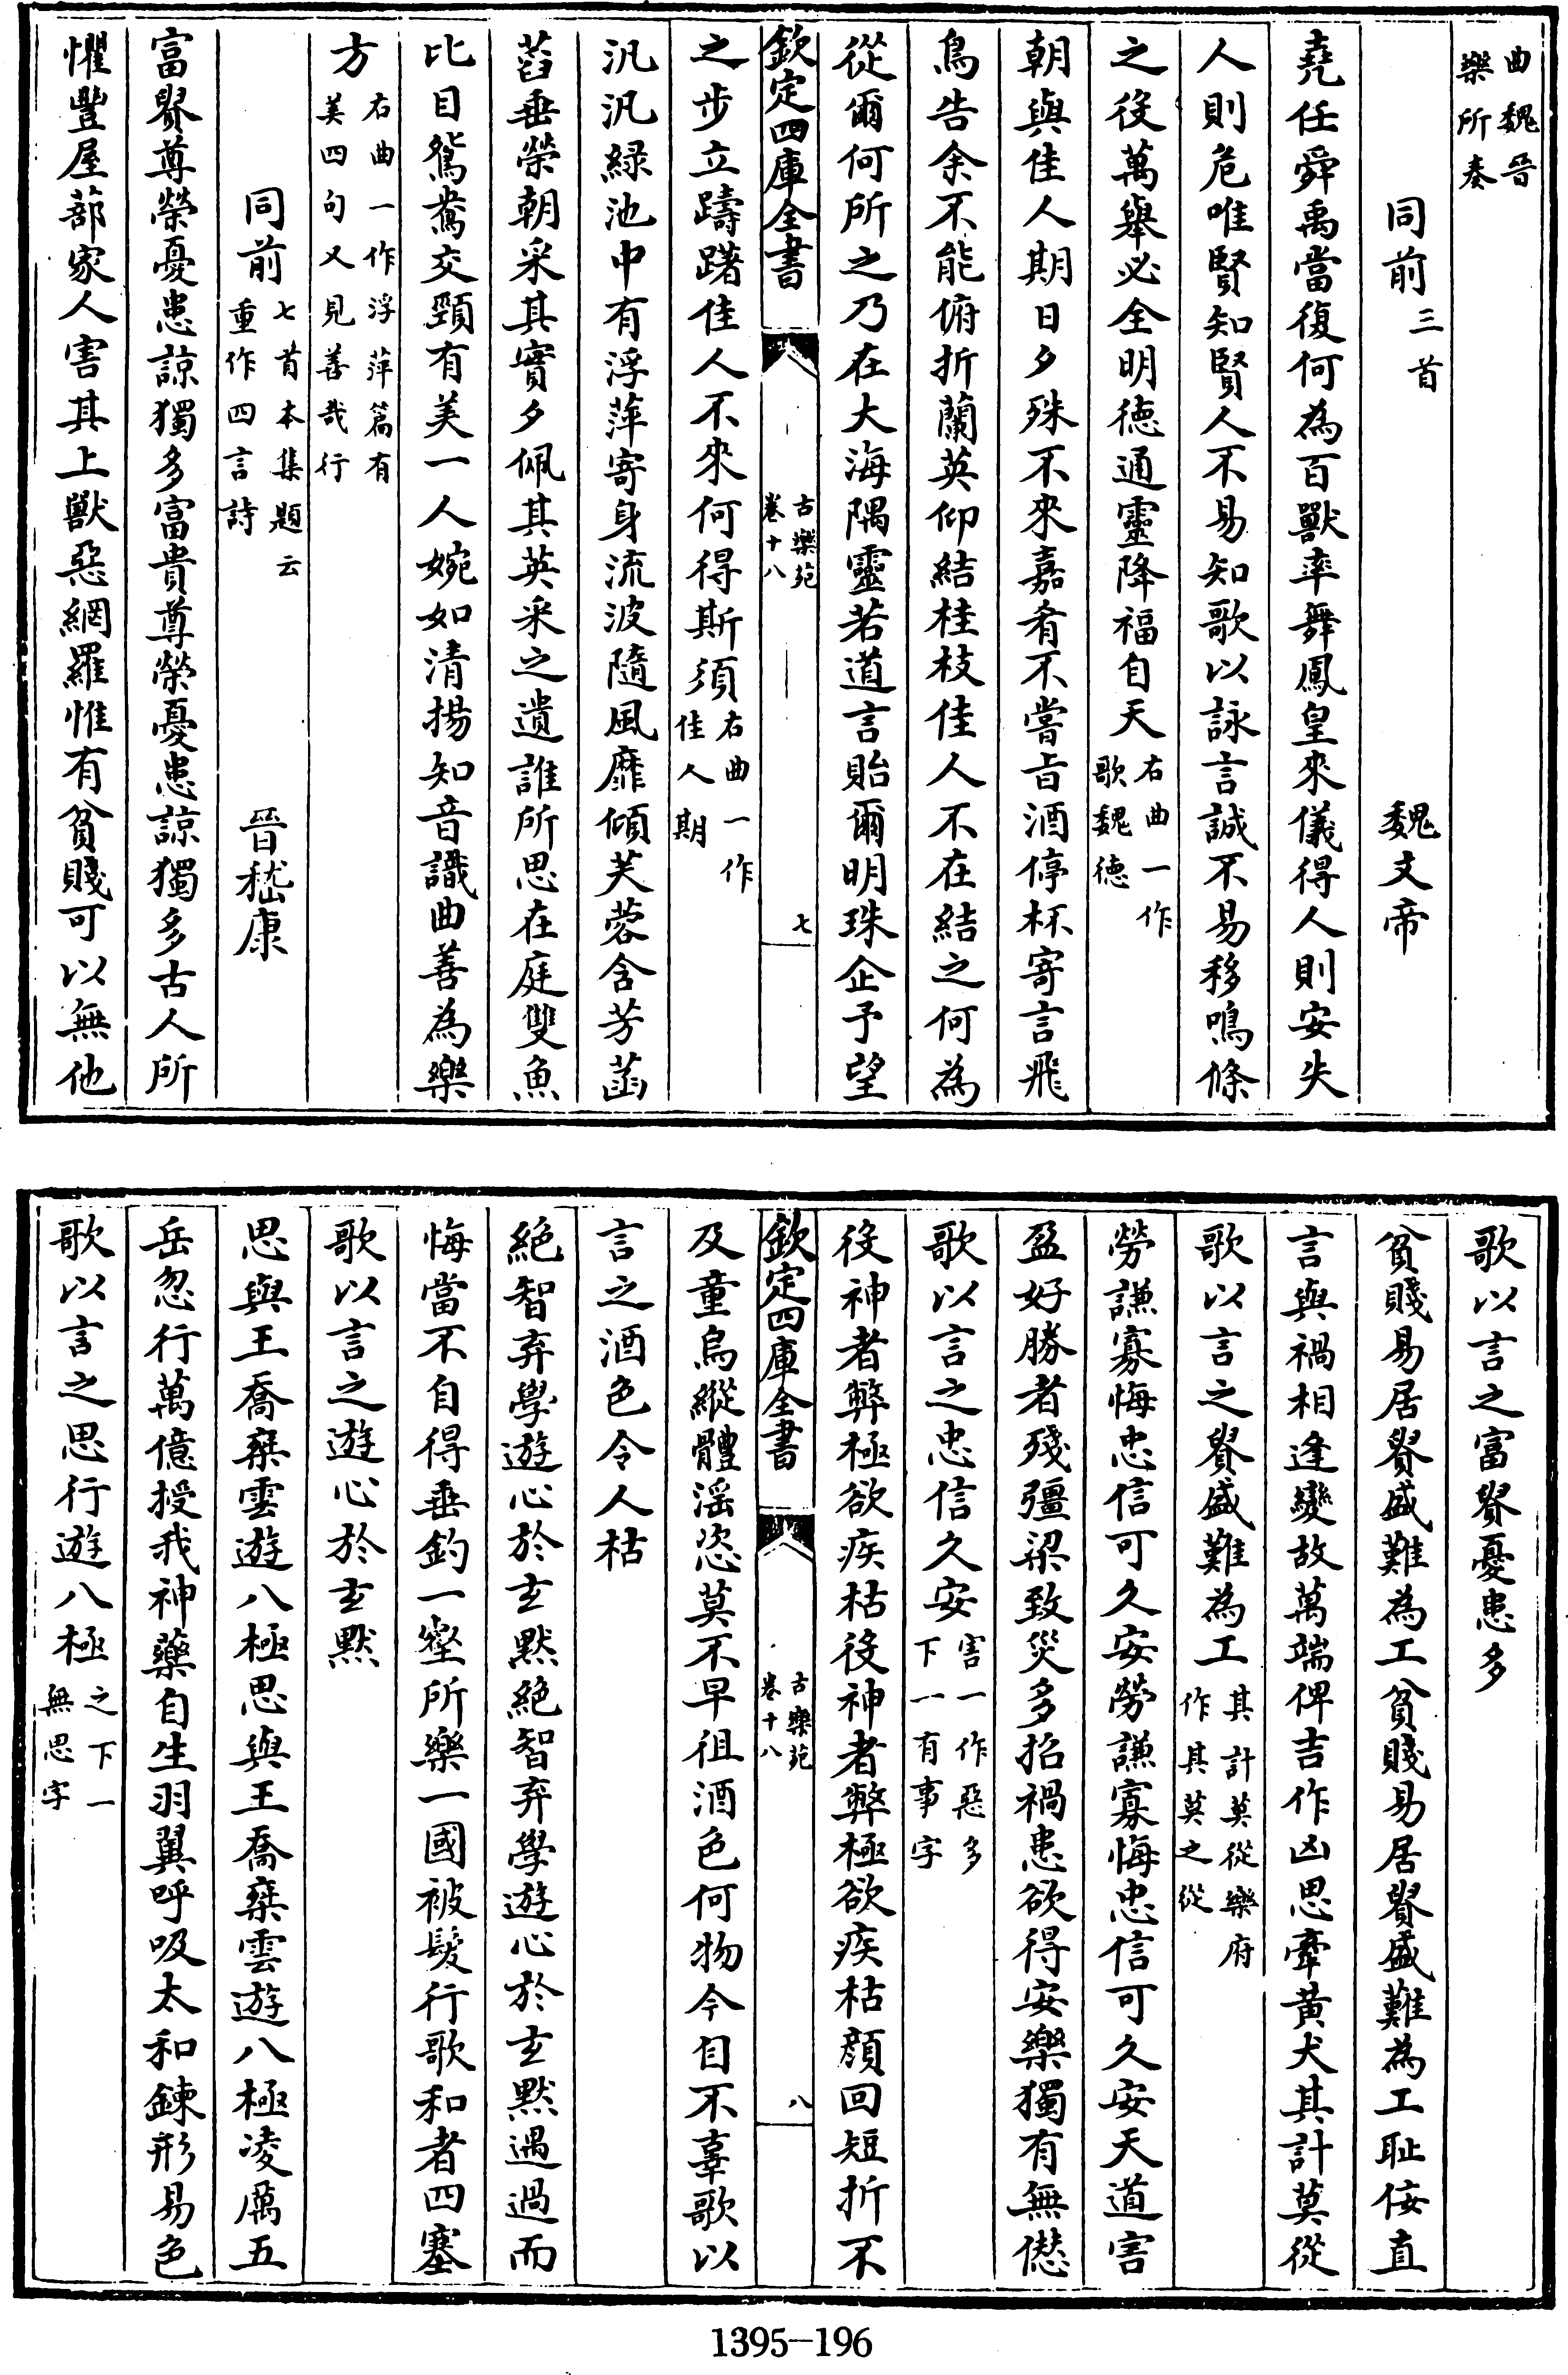 曲魏晉
樂所奏
同前三首 魏文帝
堯任舜禹當復何為百獸率舞鳳皇來儀得人則安失
人則危唯賢知賢人不易知歌以詠言誠不易移鳴條
之役萬舉必全明德通靈降福自天右曲一作歌魏德
朝與佳人期日夕殊不來嘉肴不嘗旨酒停杯寄言飛
鳥告余不能俯折蘭英仰結桂枝佳人不在結之何為
從爾何所之乃在大海隅靈若道言貽爾明珠企予望
欽定四庫全書 古樂苑 卷十八 七
之步立躊躇佳人不來何得斯須右曲一作佳人期
汎汎緑池中有浮萍寄身流波隨風靡傾芙蓉含芳菡
萏垂榮朝采其實夕佩其英采之遺誰所思在庭雙魚
比目鴛鴦交頸有美一人婉如清揚知音識曲善為樂
方右曲一作浮萍篇有美四句又見善哉行
同前七首本集題云重作四言詩 晉嵇康
富貴尊榮憂患諒獨多富貴尊榮憂患諒獨多古人所
懼豐屋蔀家人害其上獸惡網羅惟有貧賤可以無他
歌以言之富貴憂患多
貧賤易居貴盛難為工貧賤易居貴盛難為工恥佞直
言與禍相逢變故萬端俾吉作凶思牽黄犬其計莫從
歌以言之貴盛難為工其計莫從樂府作其莫之從
勞謙寡悔忠信可久安勞謙寡悔忠信可久安天道害
盈好勝者殘彊梁致災多招禍患欲得安樂獨有無愆
歌以言之忠信久安害一作惡多下一有事字
役神者弊極欲疾枯役神者弊極欲疾枯顔回短折不
欽定四庫全書 古樂苑 卷十八 八
及童烏縱體淫恣莫不早徂酒色何物今自不辜歌以
言之酒色令人枯
絶智弃學遊心於玄默絶智弃學遊心於玄默遇過而
悔當不自得垂釣一壑所樂一國被髮行歌和者四塞
歌以言之遊心於玄默
思與王喬椉雲遊八極思與王喬椉雲遊八極凌厲五
岳忽行萬億授我神藥自生羽翼呼吸太和鍊形易色
歌以言之思行遊八極之下一無思字
1395-196